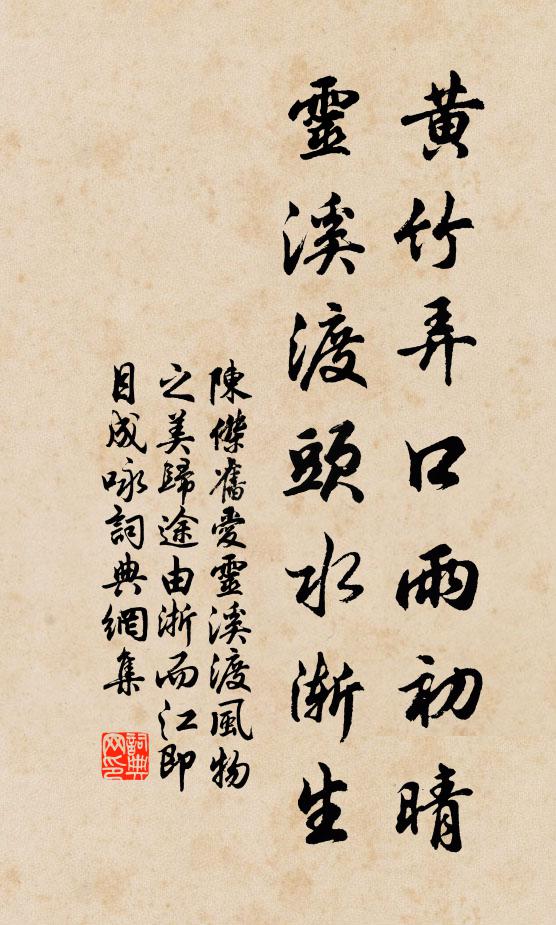 黃竹弄口雨初晴
靈溪渡頭水漸生
陳傑舊愛靈溪渡風物
之美歸途由浙而江即
目成咏詞典網集
詞典
网印